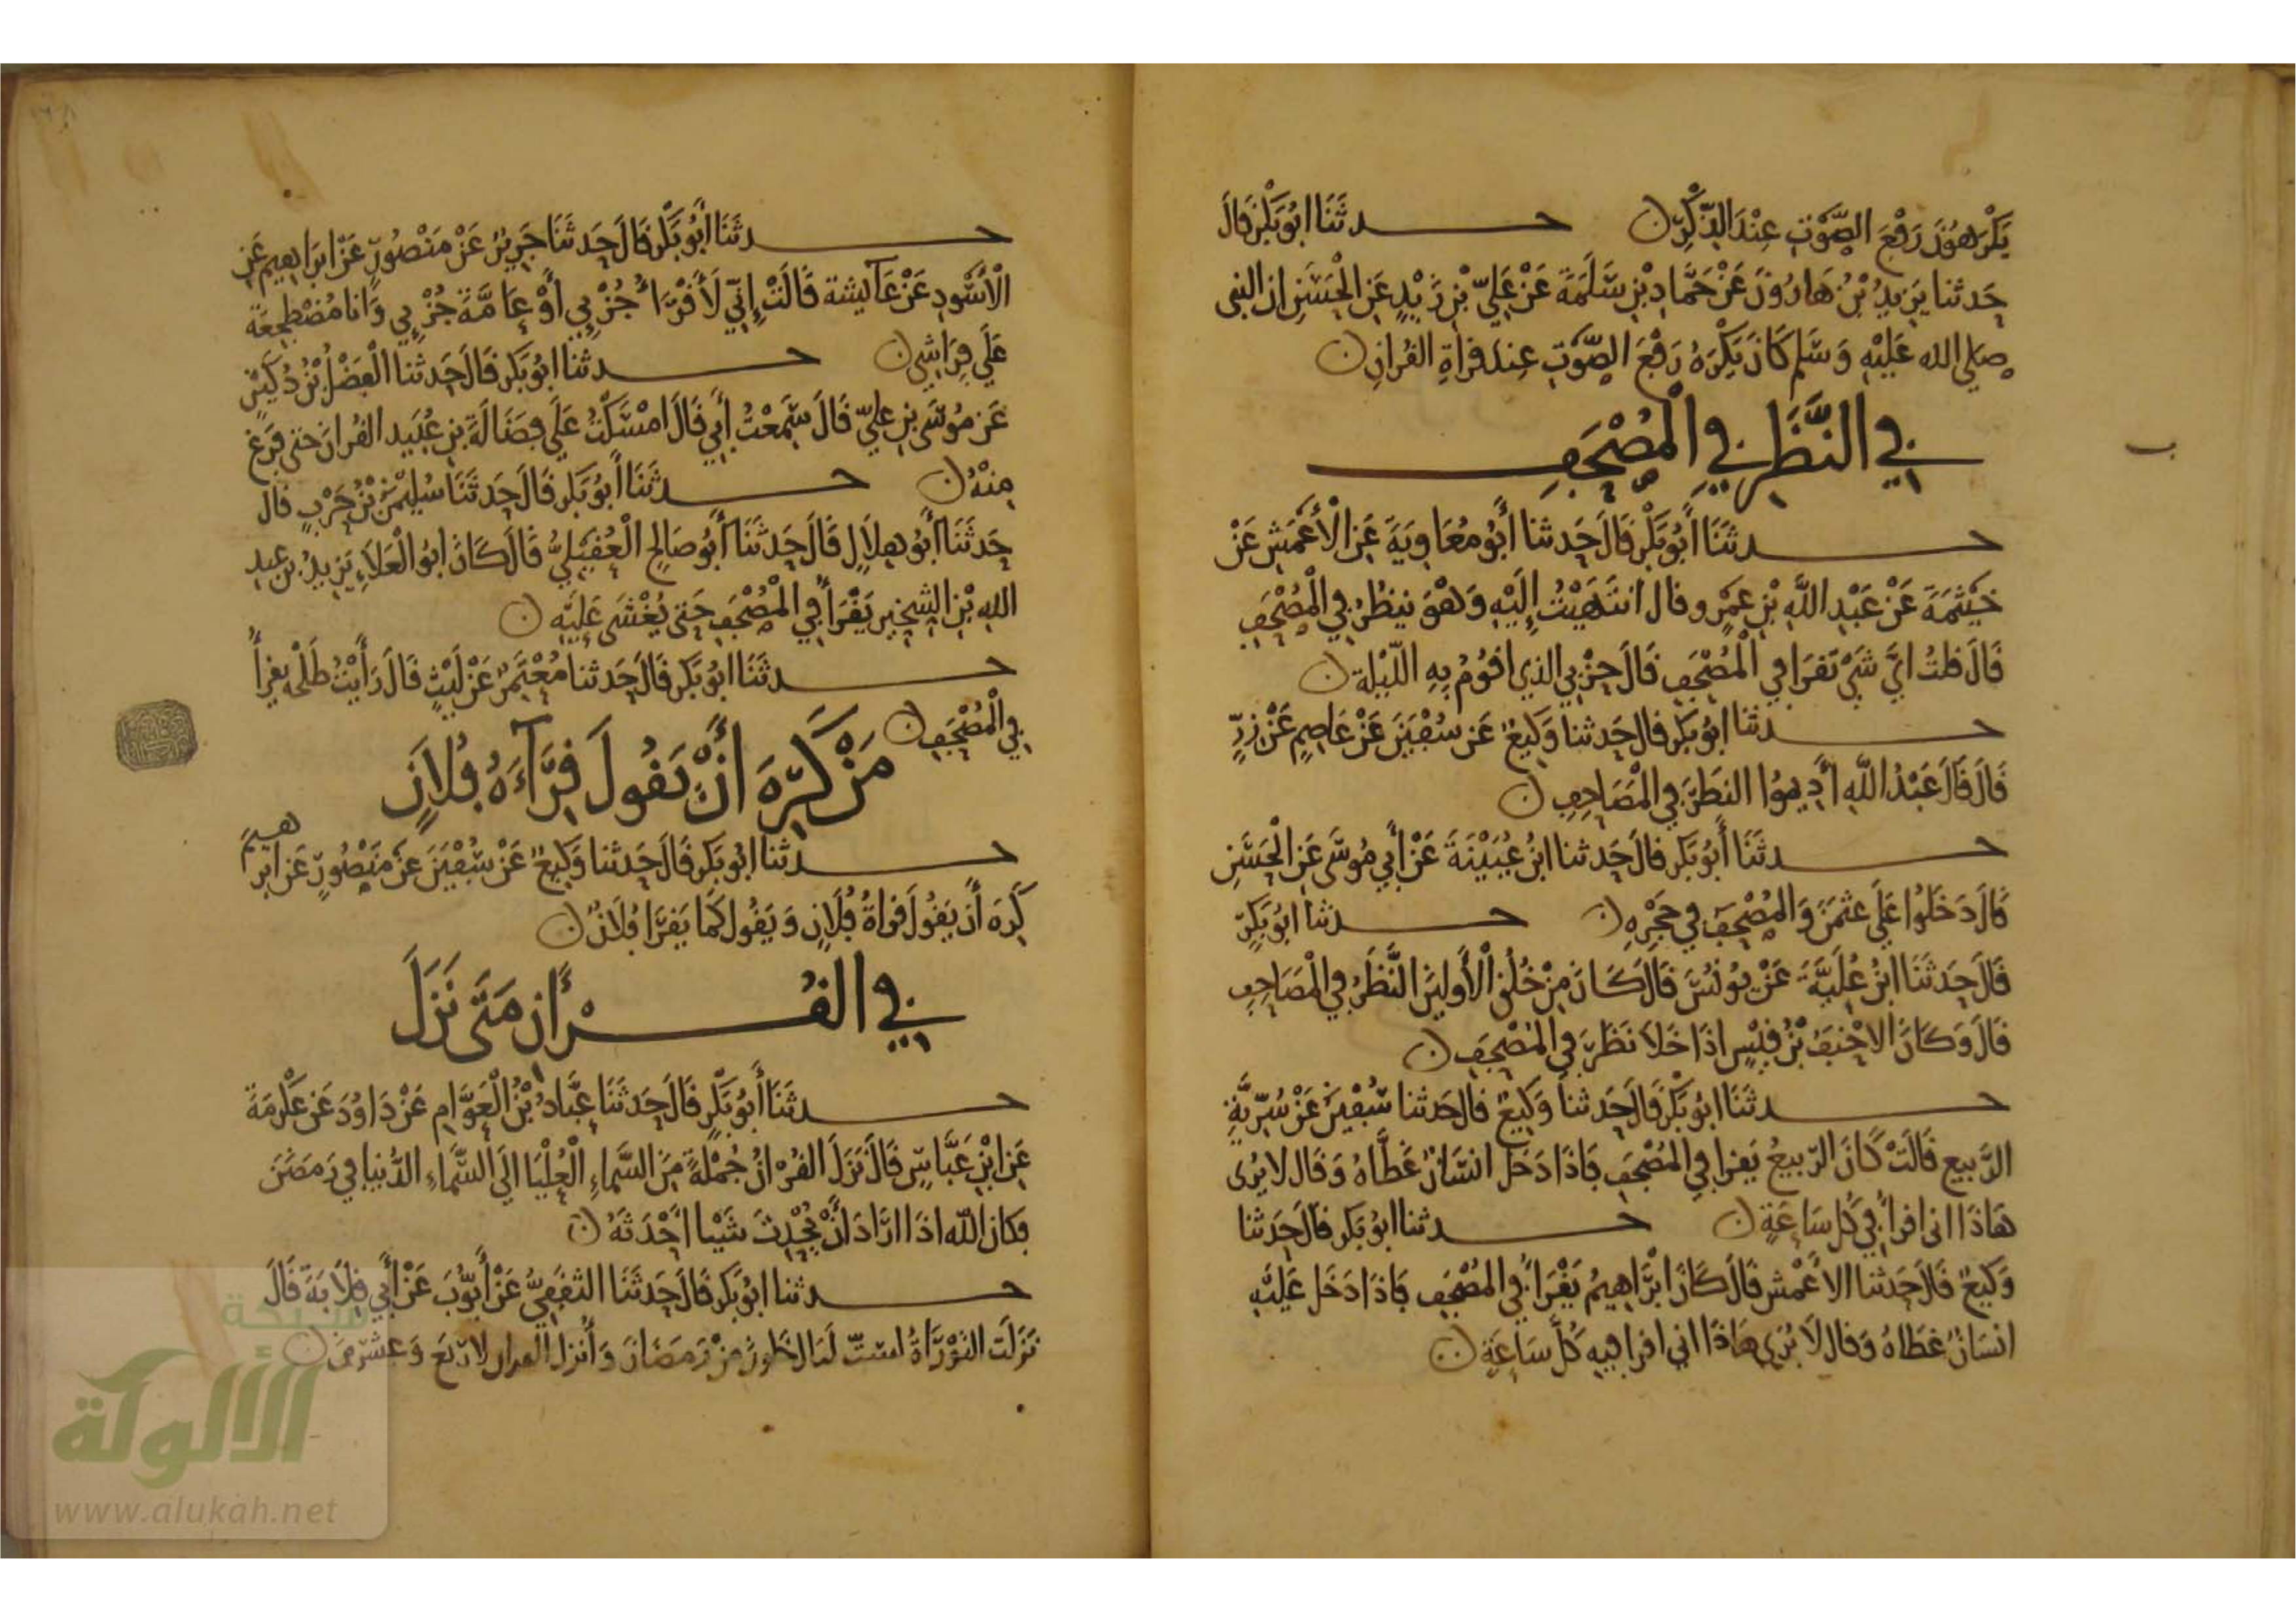 يَكْرَهُونَ رَفْعَ الصَّوْتِ عِنْدَ الذِّكْرِ حدثَنَا ابُو بَكْرٍ قَالَ
حَدثنا يَزيدُ بْنُ هَارُونَ عَنْ حَمَّادِ بْنِ سَلَمَةَ عَنْ عَلِيّ بْنِ زَيْدٍ عَنِ الْحَسَنِ ان النبى
صلى الله عَلَيْهِ وَسَلم كَانَ يَكْرَهُ رَفْعَ الصَّوْتِ عِندَ قراةِ القُرانِ
فِي النَّظَرِ فِي الْمُصْحَفِ
حدثَنَا أَبُو بَكْرٍ قَالَ حَدثنا أَبُو مُعَاوِيَةَ عَنِ الْأَعْمَشِ عَنْ
خَيْثَمَةَ عَنْ عَبْدِ اللَّهِ بْنِ عَمْرٍو قال انْتَهَيْتُ إِلَيْهِ وَهْوَ ينظُرُ فِي الْمُصْحَفِ
قَالَ قلتُ ايَّ شَيْ تَقرَا في الْمُصْحَفِ قَالَ حِزْبِي الذي اقُومُ بِهِ اللّيْلة
حدثنا ابُو بَكرٍ قال حَدثنا وَكِيعٌ عَن سُفْيَنَ عَنْ عَاصِمٍ عَنْ زِرٍّ
قَالَ قَالَ عَبْدُ اللَّهِ أَدِيمُوا النظَرَ فِي الْمَصَاحِفِ
حدثَنَا أَبُو بَكرٍ قال حَدثنا ابنُ عُيَيْنَةَ عَنْ أَبِي مُوسَى عَنِ الْحَسَنِ
قَالَ دَخَلُوا عَلَى عثمَنَ وَالمُصْحَفُ في حَجْرِهِ حدثنا ابُو بَكرٍ
قَالَ حَدثَنَا ابْنُ عُلَيَّةَ عَنْ يُونُسَ قَالَ كَانَ مِنْ خُلُقِ الْأَوَلينَ النَّظَرُ فِي الْمَصَاحِفِ
قَالَ وَكَانَ الاحْنَفُ بْنُ قَيْسٍ اذَا خَلَا نَظَرَ فِي الْمُصْحَفِ
حدثَنَا ابُو بَكْرٍ قَالَ حَدثنا وَكِيعٌ قال حَدثنا سُفْيَنُ عَنْ سُرِّيَّةِ
الرَّبيع قَالَتْ كَانَ الرّبيعُ يَقرا فِي المُصْحَفِ فَاذَا دَخَلَ انسَانٌ غَطَّاهُ وَقَال لا يَرَى
هَاذَا اني اقرأُ فِي كُل سَاعَةٍ حدثنا ابُو بَكرٍ قال حَدثنا
وَكِيعٌ قَالَ حَدثنا الاعْمش قَالَ كَانَ ابْرَاهِيمُ يَقْرَأُ فِي المُصْحَفِ فَاذَا دَخَلَ عَلَيْهِ
انسَانٌ غَطاهُ وَقال لَا يَرَى هَاذَا اني اقرا فيه كُلَّ سَاعَةٍ
حدثَنَا أَبُو بَكْرٍ قَالَ حَدثنَا جَرِيرٌ عَنْ مَنْصُورٍ عَنْ ابرَاهِيم عَنِ
الْأَسْوَدِ عَنْ عَآئيشة قَالَتْ إِنِّي لَأَقْرَأُ جُزْئِي أَوْ عَامَّةَ جُزْئِي وَانَا مُضْطجعَة
عَلَى فِرَاشِي حدثنا ابُو بَكرٍ قَالَ حَدثنا الْفَضْلُ بْنُ دُكَيْنٍ
عَن مُوسَى بنِ عليّ قَالَ سَمِعْتُ أَبِي قَالَ امْسَكْتُ عَلَى فضَالَةَ بنِ عُبَيد القُرانَ حتى فرَغَ
مِنْهُ حدثَنَا أَبُو بَكرٍ قَالَ حَدثَنَا سُلَيْمَنُ بْنُ حَرْبٍ قَال
حَدثَنَا أَبُو هِلَالٍ قَالَ حَدثَنَا أَبُو صَالِحٍ الْعُقَيْلِيُّ قَالَ كَانَ ابُو الْعَلَاءِ يَزيدُ بن عبد
الله بْنِ الشِخِيرِ يَقْرَأُ فِي الْمُصْحَفِ حَتى يُغْشَى عَلَيْهِ
حدثَنَا ابُو بَكرٍ قَالَ حَدثنا مُعْتَمِرٌ عَنْ لَيْثٍ قَالَ رَأَيْتُ طَلْحَةَ يقرأُ
فِي الْمُصْحَفِ
مَنْ كَرِهَ أَنْ يَقُولَ قِرَآءَةُ فُلَانٍ
حدثنا ابُو بَكرٍ قَالَ حَدثنا وَكِيعٌ عَنْ سُفْيَنَ عَنْ مَنصُورٍ عَن ابرهيمَ
كَرِهَ أَن يَقُولَ قراةُ فُلَانٍ وَيَقُول كَما يَقرَا فُلَانٌ
فِي القُرْأَنِ مَتَى نَزَلَ
حدثَنَا أَبُو بَكْرٍ قَالَ حَدثَنَا عَبَّادُ بْنُ الْعَوَّامِ عَنْ دَاوُدَ عَن عِكْرِمَةَ
عَنِ ابْنِ عَبَّاسٍ قَالَ نَزَلَ القُرْانُ جُمْلَةً مِنَ السَّمَاءِ الْعُلْيَا الَى السَّمَاءِ الدُّنيا في رَمَضَنَ
فكان اللّه اذَا ارَادَ انْ يُحْدِثَ شَيْئا أَحْدَثَهُ
حدثنا ابُو بَكرٍ قَالَ حَدثَنَا الثقَفِيُّ عَنْ أَيُّوبَ عَنْ أَبِي قِلَابَةَ قَالَ
نَزَلَت التَوْرَاةُ لسِتّ لَيَال خَلَونَ مِنْ رَمَضَانَ وَأُنزل القرآن لارْبَعَ وَعشرِينَ
شبكة
الألوكة
www.alukah.net